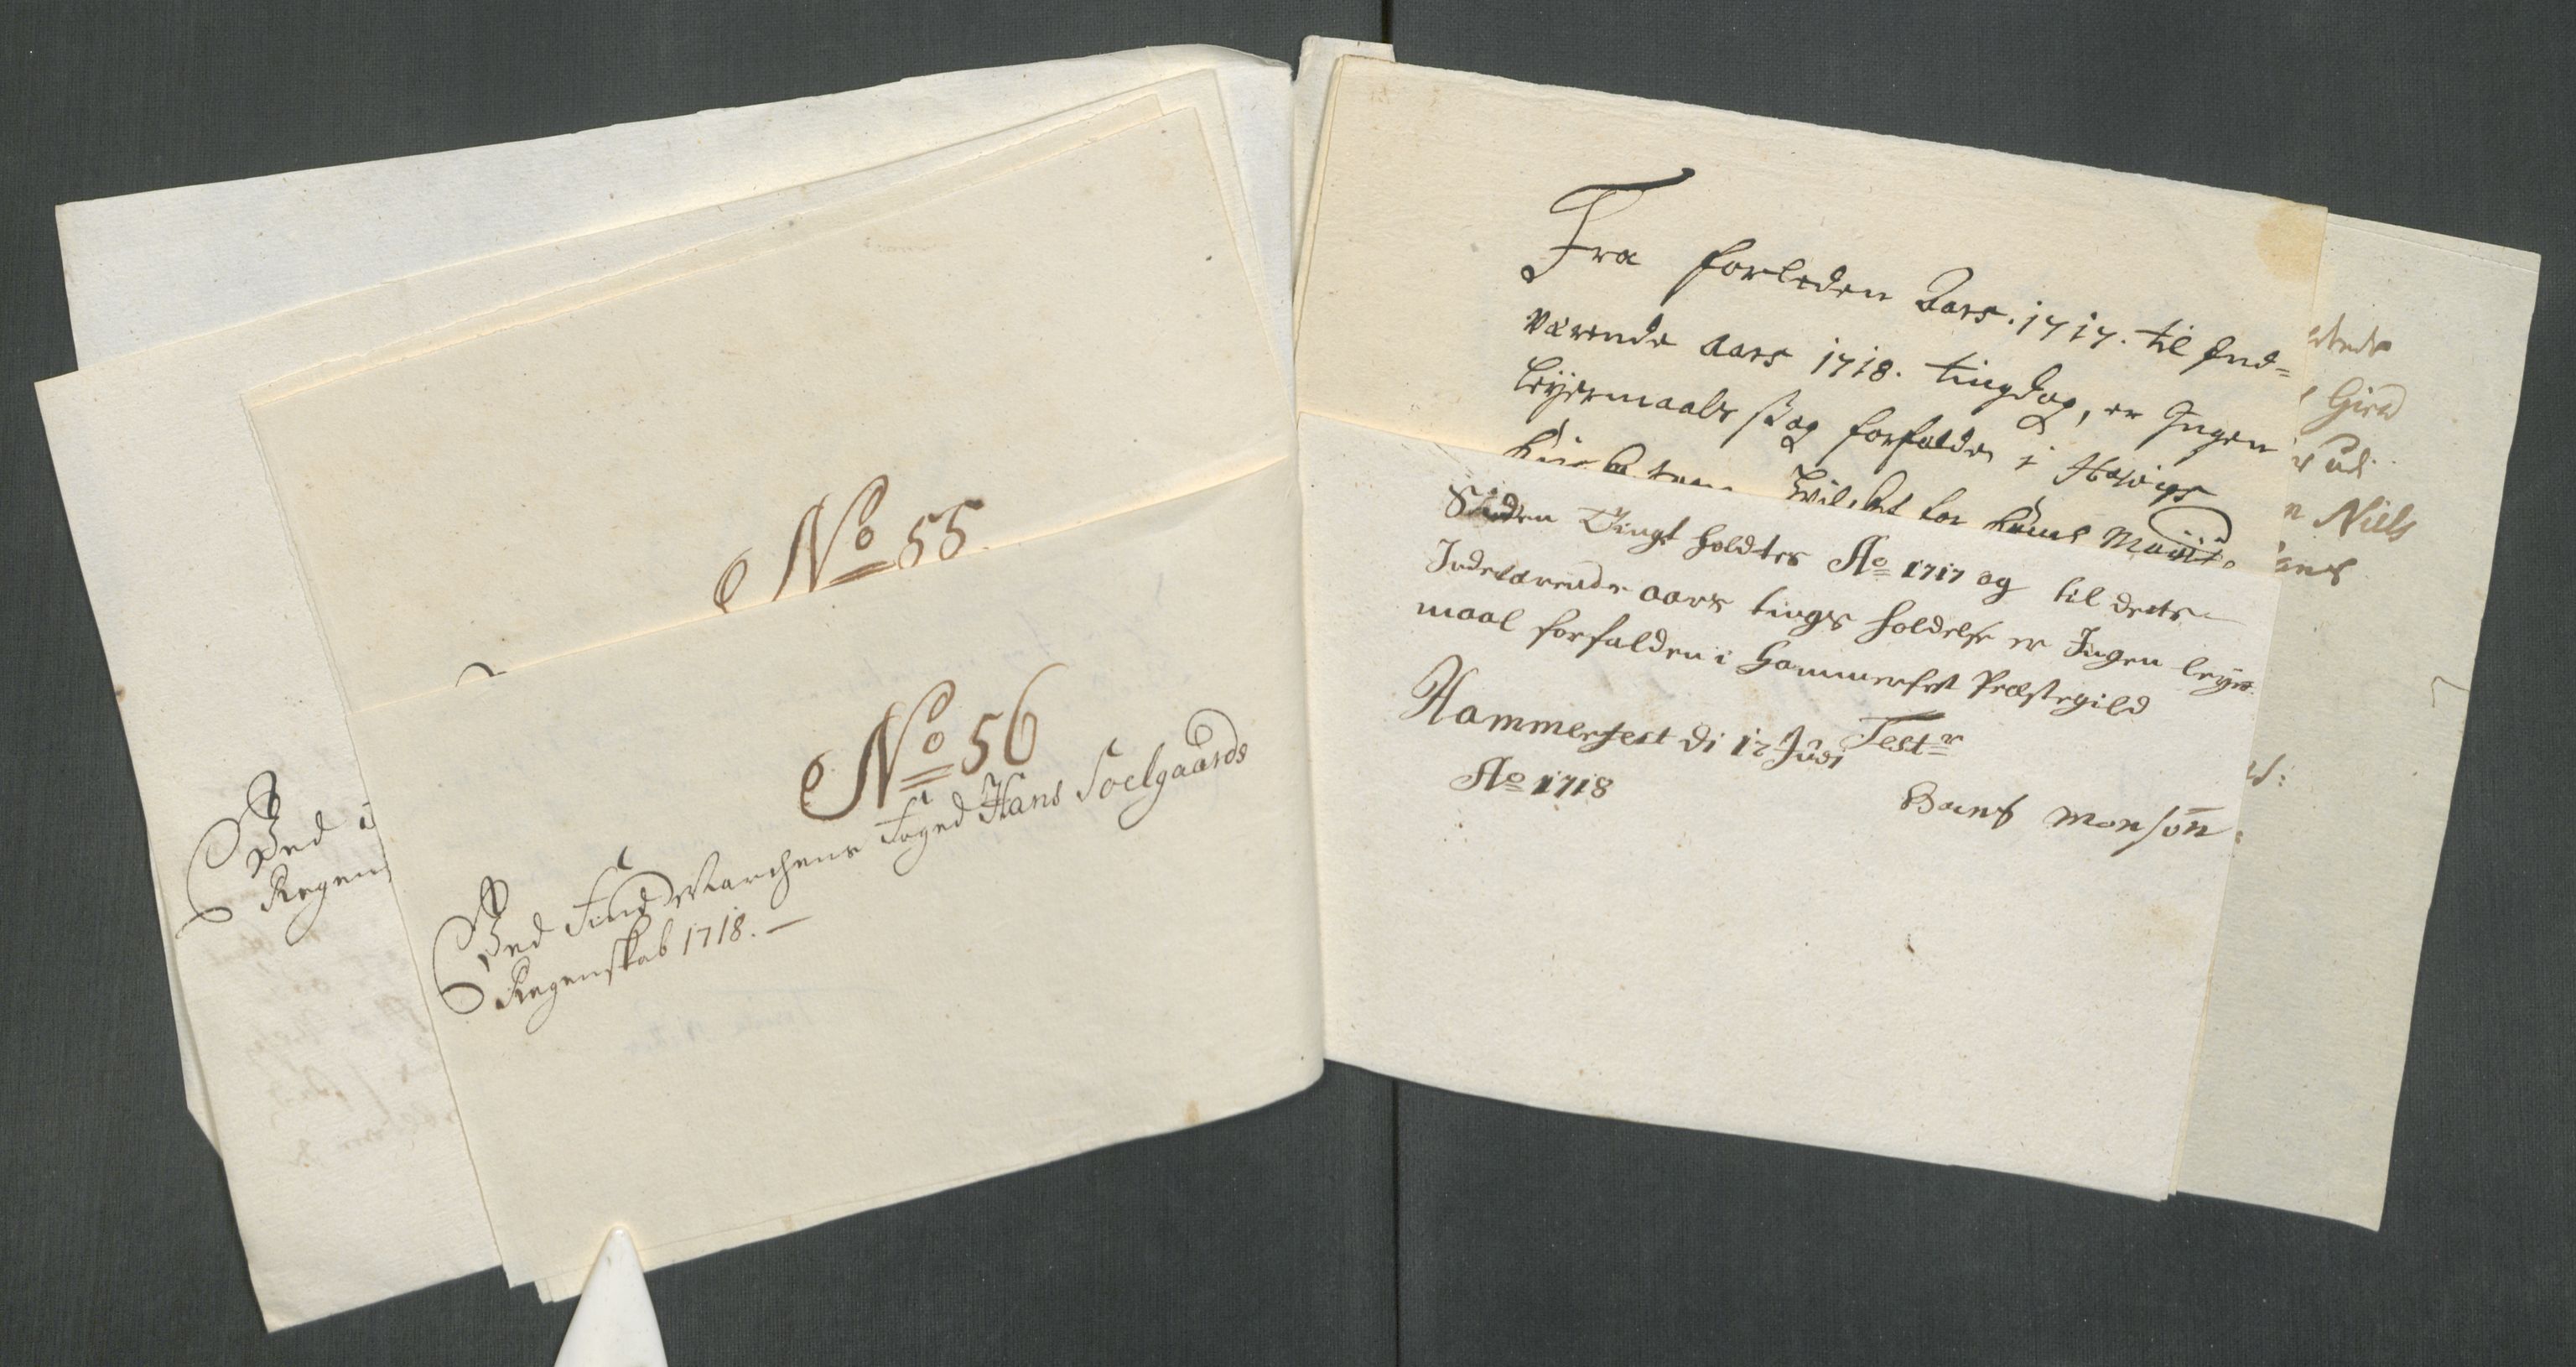 No 55
No 56
Ved Find Marchens Foged Hans Soelgaards
Regenskab 1718.
Ved
Regen
Fra forleden Aars. 1717. til Ind=
værende Aars 1718. tingdag, er Ingen
Leyermaals sag forfalden i
for Kand
Siden Tingt holdtes Ao 1717 og til dette
Indeværende aars tings holdelse er Ingen leyer
maal forfalden i Hammerfest Præstegild
Hammerfest di 12 Judi Test
Ao 1718
Hans Monsøn
Gied
udi
Niels